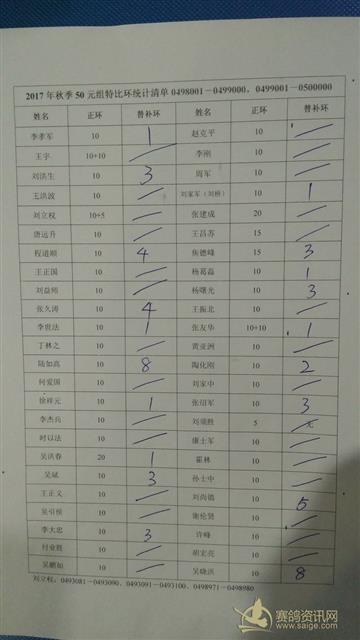 2017年秋季50元组特比环统计清单 0498001—0499000，0499001—0500000
姓名 正环 替补环 姓名 正环 替补环
李孝军 10 1 赵克平 10 /
王宇 10+10 / 李刚 10 /
刘洪生 10 3 周军 10 /
王洪波 10 / 刘家军（刘桥） 10 1
刘立权 10+5 / 张建成 20 /
唐远升 10 / 王昌苏 15 /
程道顺 10 4 焦德峰 15 3
王正国 10 / 杨葛磊 10 1
刘益刚 10 / 杨曙光 10 3
张久涛 10 4 王振北 10 /
李世法 10 1 张友华 10+10 1
丁林之 10 / 黄亚洲 10 /
陆如高 10 8 陶化刚 10 2
何爱国 10 / 刘家中 10 /
徐祥元 10 1 张绍军 10 3
李杰兵 10 / 刘颂胜 5
时以法 10 / 康士军 10 /
吴洪春 20 1 翟林 10 /
吴斌 10 3 孙士中 10 /
王正义 10 / 刘尚镇 10 5
吴引侯 10 / 谢伦贤 10 /
李大忠 10 3 许峰 10 /
付业胜 10 / 胡宏亮 10 /
吴鹏如 10 / 吴晓洪 10 8
刘立权：0493081—0493090，0493091—0493100，0498971—0498980
赛鸽资讯网
www.saige.com